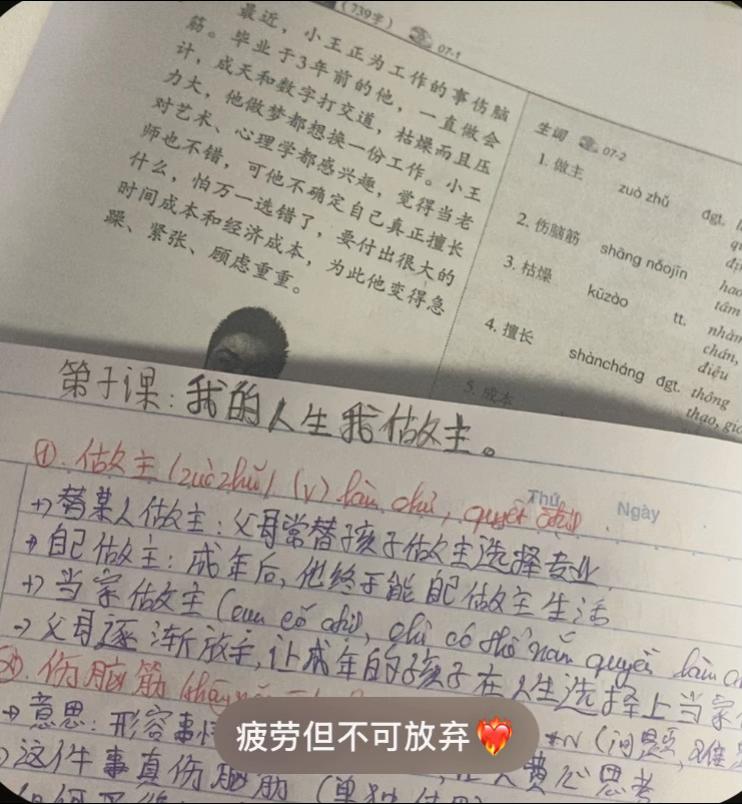 (739字) 07-1
最近，小王正为工作的事伤脑
筋。毕业于3年前的他，一直做会
计，成天和数字打交道，枯燥而且压
力大，他做梦都想换一份工作。小王
对艺术、心理学都感兴趣，觉得当老
师也不错，可他不确定自己真正擅长
什么，怕万一选错了，要付出很大的
时间成本和经济成本，为此他变得急
躁、紧张、顾虑重重。
生词 07-2
1. 做主 zuò zhǔ đgt.
2. 伤脑筋 shāng nǎojīn
3. 枯燥 kūzào tt. nhàm
chán,
điệu
4. 擅长 shàncháng đgt. thông
thạo, giỏ
5. 成本
课：我的人生我做主。
Thứ
Ngày
①. 做主 (zuò zhǔ) (v) làm chủ, quyết định
+) 替某人做主：父母常替孩子做主选择专业
自己做主：成年后，他终于能自己做主生活
+) 当家做主
→ 父母逐渐放手，让成年的孩子在人生选择上当家
②. 伤脑筋
意思：形容事情
+N (问题，难题
这件事真伤脑筋 (单独使用)
费心思考
疲劳但不可放弃❤️‍🔥